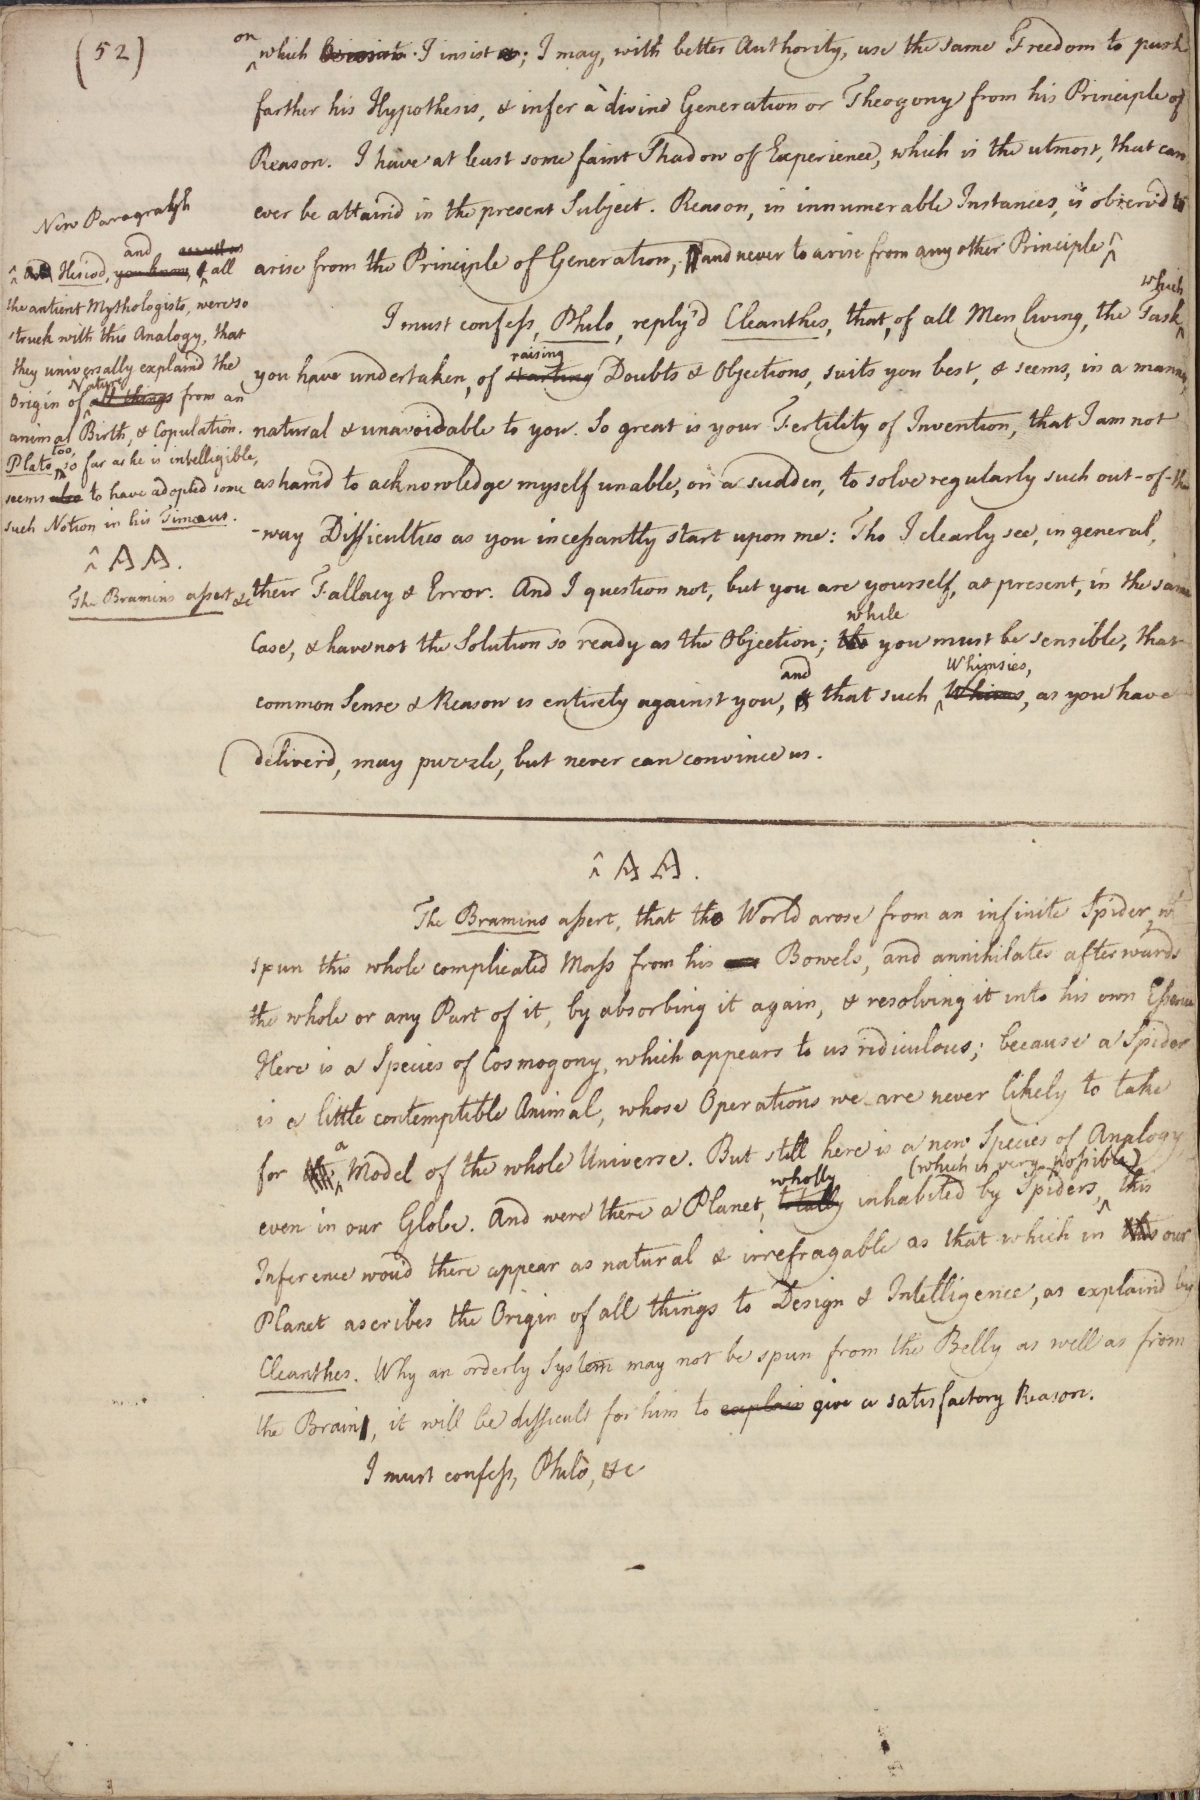 (52)
on
which I insist; I may, with better Authority, use the same Freedom to push
farther his Hypothesis, & infer a divine Generation or Theogony from his Principle of
Reason. I have at least some faint Shadow of Experience, which is the utmost, that can
ever be attain'd in the present Subject. Reason, in innumerable Instances, is observ'd to
arise from the Principle of Generation, and never to arise from any other Principle ^
New Paragraph
and
^ Hesiod, you know, & all
the antient Mythologists, were so
struck with this Analogy, that
they universally explain'd the
Nature
Origin of all things from an
animal Birth, & Copulation.
too,
Plato, so far as he is intelligible,
seems also to have adopted some
such Notion in his Timæus.
^ A A.
The Bramins assert &c
which
I must confess, Philo, reply'd Cleanthes, that, of all Men living, the Task,
raising
you have undertaken, of starting Doubts & Objections, suits you best, & seems, in a manner,
natural & unavoidable to you. So great is your Fertility of Invention, that I am not
asham'd to acknowledge myself unable, on a sudden, to solve regularly such out-of-the
-way Difficulties as you incessantly start upon me: Tho I clearly see, in general,
their Fallacy & Error. And I question not, but you are yourself, at present, in the same
while
Case, & have not the Solution so ready as the Objection; tho you must be sensible, that
and Whimsies,
common Sense & Reason is entirely against you, & that such Whims, as you have
deliver'd, may puzzle, but never can convince us.
^ A A.
The Bramins assert, that the World arose from an infinite Spider, who
spun this whole complicated Mass from his Bowels, and annihilates afterwards
the whole or any Part of it, by absorbing it again, & resolving it into his own Essence
Here is a Species of Cosmogony, which appears to us ridiculous; because a Spider
is a little contemptible Animal, whose Operations we are never likely to take
a
for Model of the whole Universe. But still here is a new Species of Analogy
wholly (which is very possible)
even in our Globe. And were there a Planet, totally inhabited by Spiders, ^ this
Inference wou'd there appear as natural & irrefragable as that which in this our
Planet ascribes the Origin of all things to Design & Intelligence, as explain'd by
Cleanthes. Why an orderly System may not be spun from the Belly as well as from
the Brain, it will be difficult for him to explain give a satisfactory Reason.
I must confess, Philo, &c